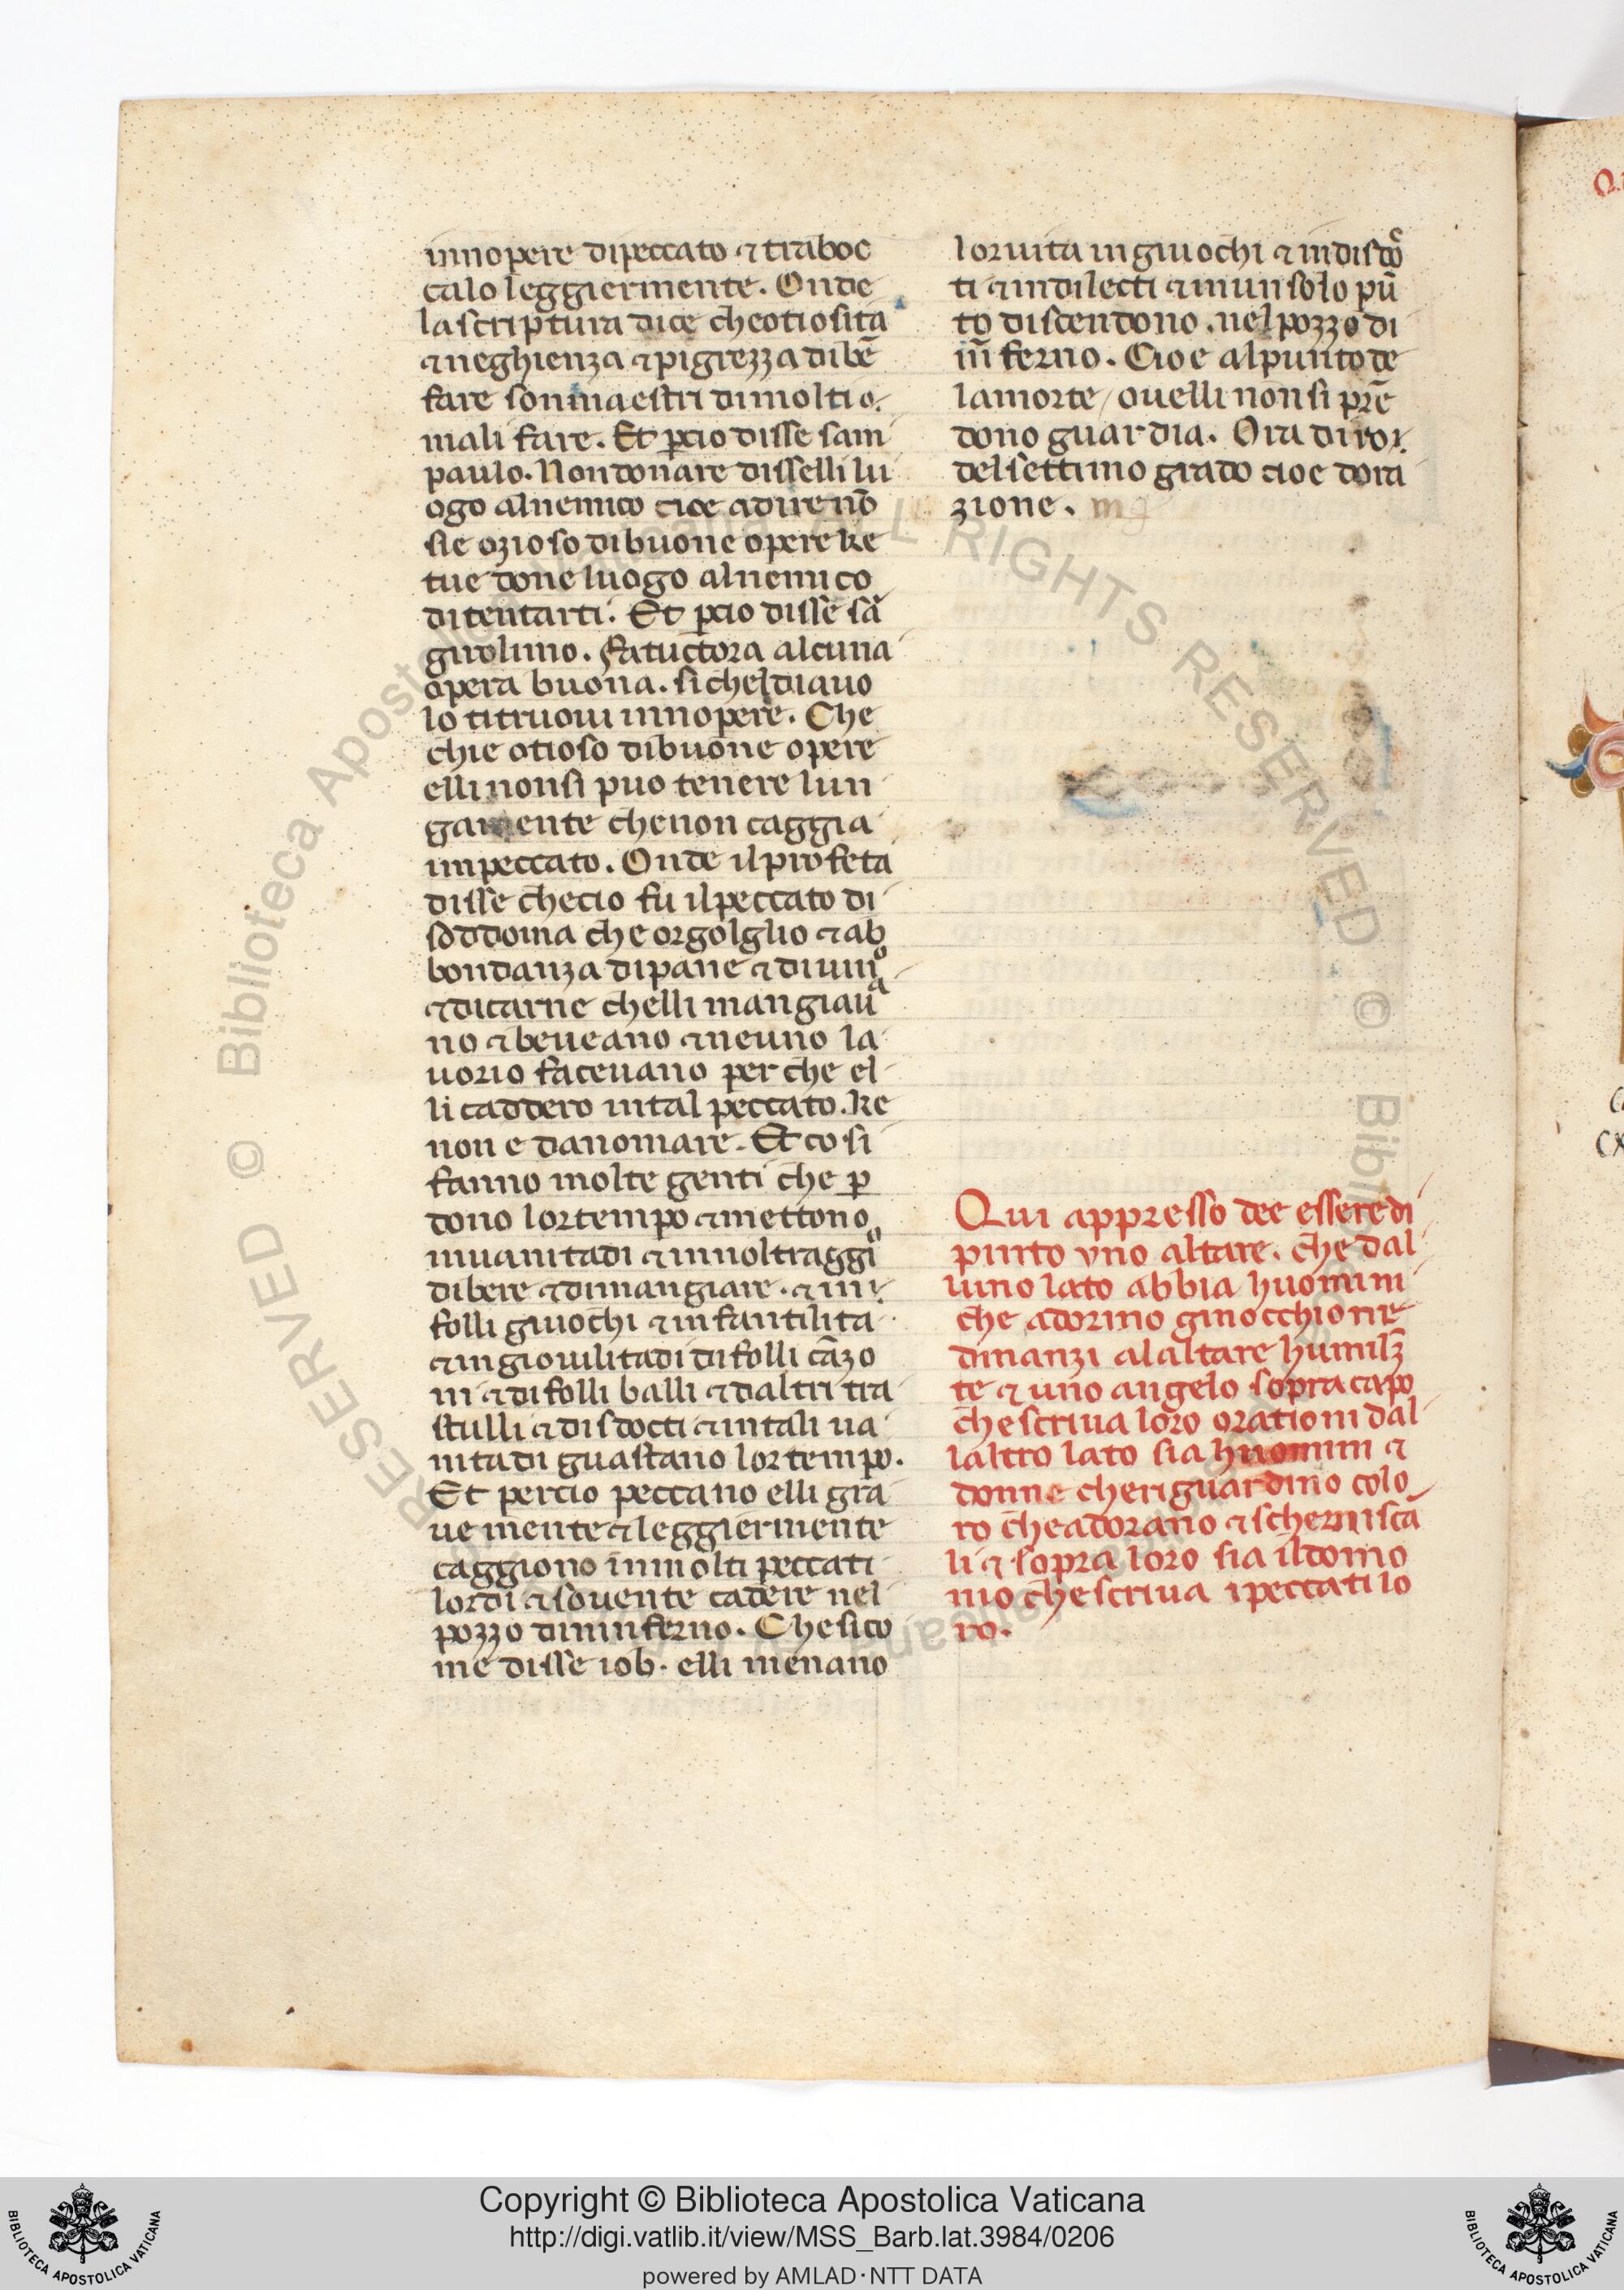 innopere dipeccato ⁊ traboc
calo leggiermente. Onde
lascriptura dice cheotiosita
⁊ neghienza ⁊ pigrezza dibē
fare sonmaestri dimolti o.
mali fare. Et ꝑcio disse sam
paulo. Nondonare disselli lu
ogo alnemico cioe adire nō
sie ozioso dibuone opere ke
tue done luogo alnemico
ditentarti. Et ꝑcio disse sā
girolimo. Fatuctora alcuna
opera buona. sicheldiauo
lo titruoui innopere. Che
chie otioso dibuone opere
elli nonsi puo tenere lun
gamente chenon caggia
impeccato. Onde ilprofeta
disse checio fu ilpeccato di
soddoma che orgolglio ⁊ ab
bondanza dipane ⁊ diuino
⁊ dicarne chelli mangiaua
no ⁊ beueano ⁊ neuno la
uorio faceuano perche el
li caddero intal peccato. ke
non e danomare. Et cosi
fanno molte genti che ꝑ
dono lortempo ⁊ mettono
inuanitadi ⁊ innoltraggio
dibere ⁊ dimangiare. ⁊ in
folli giuochi ⁊ infantilita
⁊ ingiouilitadi difolli cāzo
ni ⁊ difolli balli ⁊ daltri tra
stulli ⁊ disdocti ⁊ intali ua
nitadi guastano lortempo.
Et percio peccano elli gra
uemente ⁊ leggiermente
caggiono inmolti peccati
lordi ⁊ souente cadere nel
pozzo dininferno. Chesico
me disse iob. elli menano
loruita ingiuochi ⁊ indisdo
ti ⁊ indilecti ⁊ inunsolo pū
to discendono. nelpozzo di
īnferno. Cioe alpunto de
lamorte / ouelli nonsi prē
dono guardia. Ora diro.
delsettimo grado cioe dora
zione.
Qui appresso dee essere di
pinto vno altare. che dal
luno lato abbia huomini
che adorino ginocchione
dinanzi alaltare humilm̄
te ⁊ uno angelo sopracapo
chescriua loro orationi dal
laltro lato sia huomini ⁊
donne cheriguardino colo
ro cheadorano ⁊ schernisca
li ⁊ sopra loro sia ildomo
nio chescriua i peccati lo
ro.
Copyright © Biblioteca Apostolica Vaticana
http://digi.vatlib.it/view/MSS_Barb.lat.3984/0206
powered by AMLAD·NTT DATA